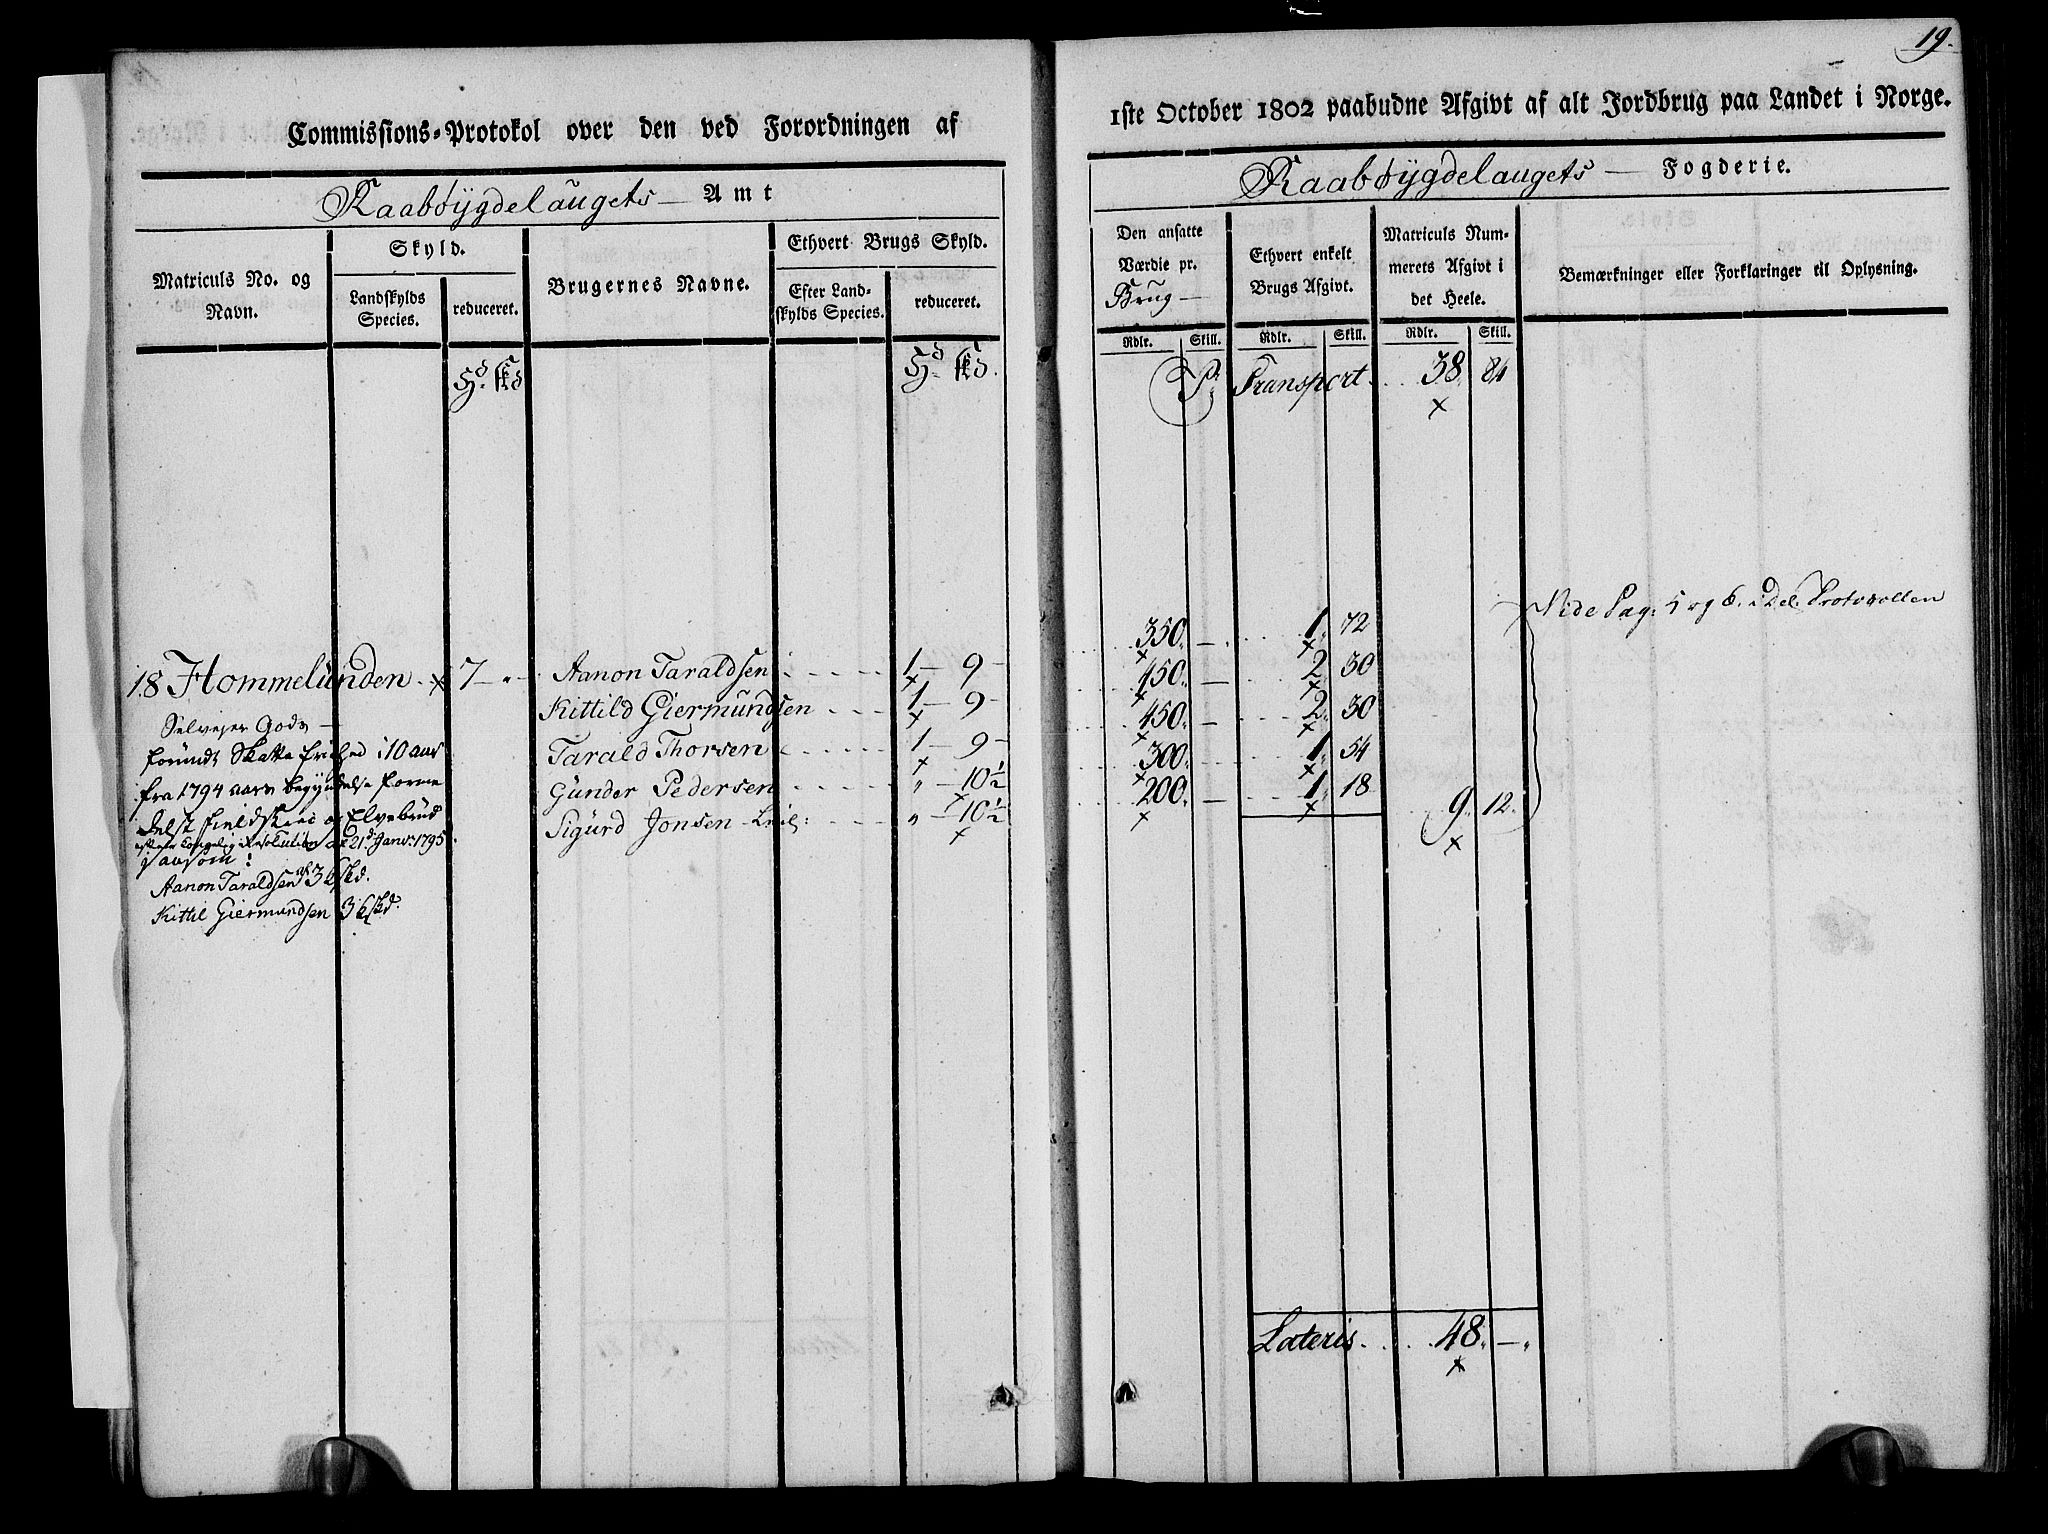 19.
Commissions-Protokol over den ved Forordningen af
1ste October 1802 paabudne Afgivt af alt Jordbrug paa Landet i Norge.
Raabøygdelaugets Amt
Raabøygdelaugets Fogderie.
Matriculs No. og Navn.
Skyld.
Landskylds Species.
reduceret.
Brugernes Navne.
Ethvert Brugs Skyld.
Efter Landskylds Species.
reduceret.
Den ansatte Værdie pr. Brug
Ethvert enkelt Brugs Afgivt.
Matriculs Nummerets Afgivt i det Heele.
Bemærkninger eller Forklaringer til Oplysning.
Rdlr. Skill. Rdlr. Skill. Rdlr. Skill.
Hd. skd
Hd. skd.
Pr. Transport. 38. 84
x
Vide Pag: 5 og 6. i Del: Protocollen
18 Hommelunden x 7 " Aanon Taraldsen 1 – 9 – 350. – 1. 72
Kittild Giermundsen 1 – 9 – 450. – 2. 30
Tarald Thorsen 1 – 9 – 450. – 2. 30
Gunder Pedersen " – 10½ 300. 1. 54
Sigurd Jonsen Leil: " – 10½ 200. – 1. 18 9. 12.
Selvejer Gods
forundt Skatte frihed i 10 aar
fra 1794 aars begyndelse
Elvebrud
21d Janv: 1795.
saasom:
Aanon Taraldsen af 3 6skd.
Kittil Giermundsen 3 6skd.
Lateris. 48. –
x